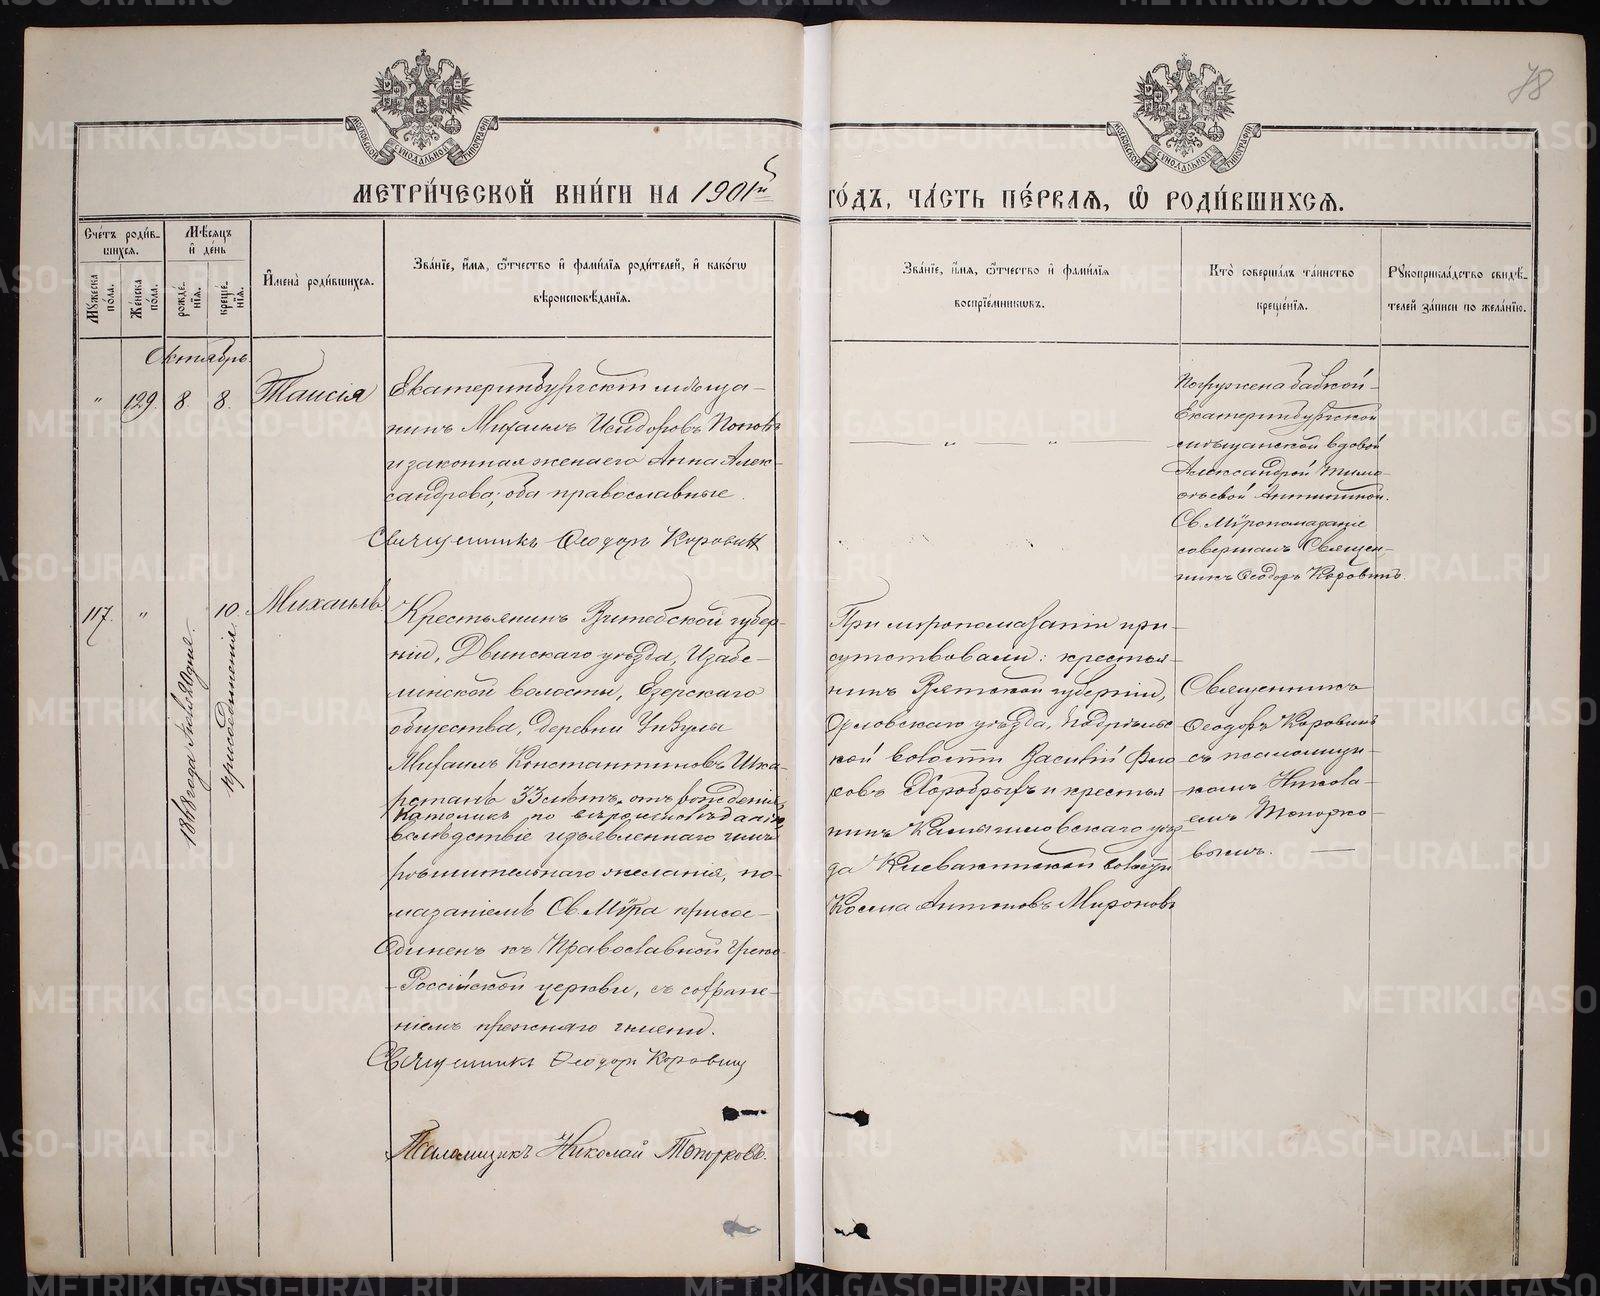 78
МОСКОВСКОЙ СѴНОДАЛЬНОЙ ТИПОГРАФІИ
МОСКОВСКОЙ СѴНОДАЛЬНОЙ ТИПОГРАФІИ
МЕТРИ́ЧЕСКОЙ КНИ́ГИ НА 1901й ГО́ДЪ, ЧА́СТЬ ПЕ́РВАѦ, Ѡ҆ РОДИ́ВШИХСѦ.
Сче́тъ роди́в-
шихсѧ.
Мꙋ́жеска по́ла.
Же́нска по́ла.
Мѣ́сѧцъ и҆ де́нь
рожде́нїѧ.
креще́нїѧ.
И҆мена̀ роди́вшихсѧ.
Зва́нїе, и҆́мѧ, ѻ҆́тчество и҆ фами́лїѧ роди́телей, и҆ како́гѡ
вѣроисповѣ́данїѧ.
Зва́нїе, и҆́мѧ, ѻ҆́тчество и҆ фами́лїѧ
воспрїе́мникѡвъ.
Кто̀ соверша́лъ та́инство
креще́нїѧ.
Рꙋкоприкла́дство свидѣ́-
телей за́писи по жела́нїю.
Октябрь.
" 129. 8. 8. Таисія
Екатеринбургскій мѣща-
нинъ Михаилъ Исидоровъ Поповъ
и законная жена его Анна Алек-
сандрова; оба православные.
Священникъ Ѳеодоръ Коровин
— " — " —
Погружена бабкой-
Екатеринбургской
мѣщанской вдовой
Александрой Тимо-
ѳеевой
Св. Мѵропомазаніе
совершалъ Священ-
никъ Ѳеодоръ Коровинъ.
117. " 10. Михаилъ
1868 года Ноября 20 дня.
присоединенія.
Крестьянинъ Витебской губер-
ніи, Двинскаго уѣзда, Изабе-
линской волости, Езерскаго
общества, деревни
Михаилъ Константиновъ Шка-
33 лѣтъ, отъ рожденія
католикъ по вѣроисповѣданію
вслѣдствіе изъявленнаго имъ
рѣшительнаго желанія, по-
мазаніемъ Св. Мѵра присо-
единенъ къ Православной Греко-
Россійской церкви, съ сохране-
ніемъ прежняго имени.
Священникъ Ѳеодоръ Коровин
Псаломщикъ Николай Топорковъ.
При мѵропомазаніи при-
сутствовали: крестья-
нинъ Вятской губерніи,
Орловскаго уѣзда, Подрѣльс
кой волости Василій Фло
ровъ Хоробрыхъ и крестья
нинъ Камышловскаго уѣз
да Клевакинской волости
Косма Антоновъ Мироновъ
Священникъ
Ѳеодоръ Коровинъ
съ псаломщи-
комъ Никола-
емъ Топорко-
вымъ. —
METRIKI.GASO-URAL.RU